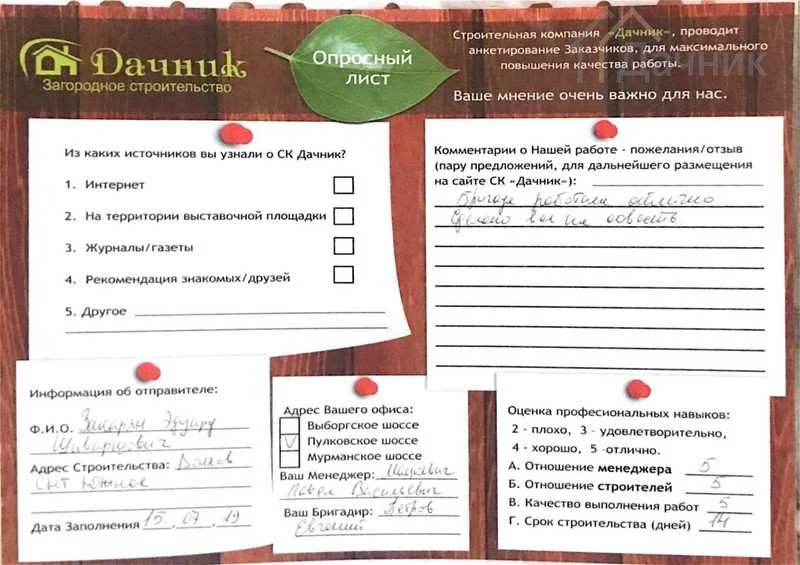 Дачник
Загородное строительство
Опросный
лист
Строительная компания «Дачник», проводит
анкетирование Заказчиков, для максимального
повышения качества работы.
Ваше мнение очень важно для нас.
Дачник
Из каких источников вы узнали о СК Дачник?
1. Интернет
2. На территории выставочной площадки
3. Журналы/газеты
4. Рекомендация знакомых/друзей
5. Другое
Комментарии о Нашей работе - пожелания/отзыв
(пару предложений, для дальнейшего размещения
на сайте СК «Дачник»):
Бригада работала отлично
Сделано все на совесть
Информация об отправителе:
Ф.И.О. Закарян Эдуард
Адрес Строительства: Волхов
СНТ Южное
Дата Заполнения 15.07.19
Адрес Вашего офиса:
Выборгское шоссе
Пулковское шоссе
Мурманское шоссе
Ваш Менеджер:
Павел Васильевич
Ваш Бригадир: Петров
Евгений
Оценка профессиональных навыков:
2 - плохо, 3 - удовлетворительно,
4 - хорошо, 5 -отлично.
А. Отношение менеджера 5
Б. Отношение строителей 5
В. Качество выполнения работ 5
Г. Срок строительства (дней) 14